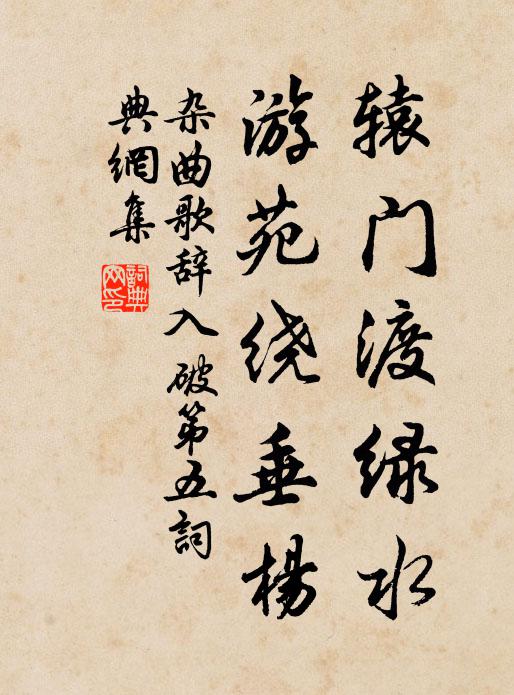 辕门渡绿水
游苑绕垂杨
杂曲歌辞入破第五詞
典網集
詞典
网印